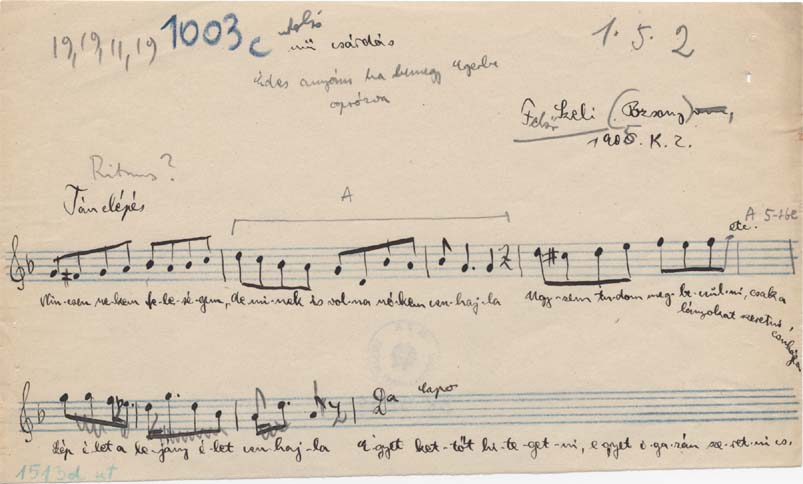 19, 19, 11, 19 1003 c utolsó 1. 5. 2
mű csárdás
Édes anyám ha bemegy Egerbe
aprózva
Felső Szeli (Pozsony)
1905. K. Z.
Ritmus?
A
Tánclépés
A 5-
etc.
Nin-csen ne-kem fe-le-sé-gem, de mi-nek is vol-na né-kem csu-haj-la Úgy-sem tu-dom meg-be-csül-ni, csak a
lányokat szeretni,
csuhajja
Szép é-let a le-ány é-let csu-haj-la Egyet ket-tőt hi-te-get-ni, e-gyet i-ga-zán sze-ret-ni is.
Da capo
1513d. ut